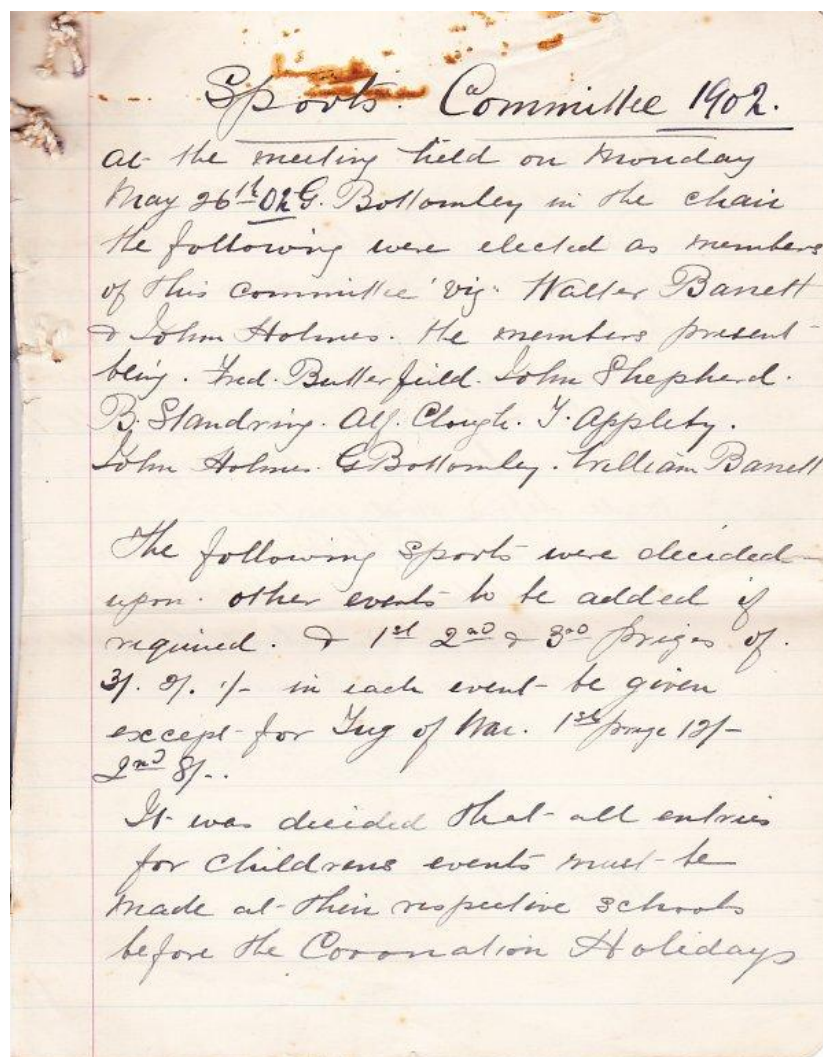 Sports. Committee 1902.
At the meeting held on Monday
May 26th 02 G. Bottomley in the chair
the following were elected as members
of this committee viz: Walter Barrett
& John Holmes. the members present
being. Fred. Butterfield. John Shepherd.
B. Standring. Alf. Clough. T. Appleby.
John Holmes. G Bottomley. William Barrett
The following sports were decided
upon. other events to be added if
required. & 1st 2nd & 3rd prizes of.
3/. 2/. 1/- in each event be given
except for Tug of War. 1st prize 12/-
2nd 8/-.
It was decided that all entries
for childrens events must be
made at their respective schools
before the Coronation Holidays